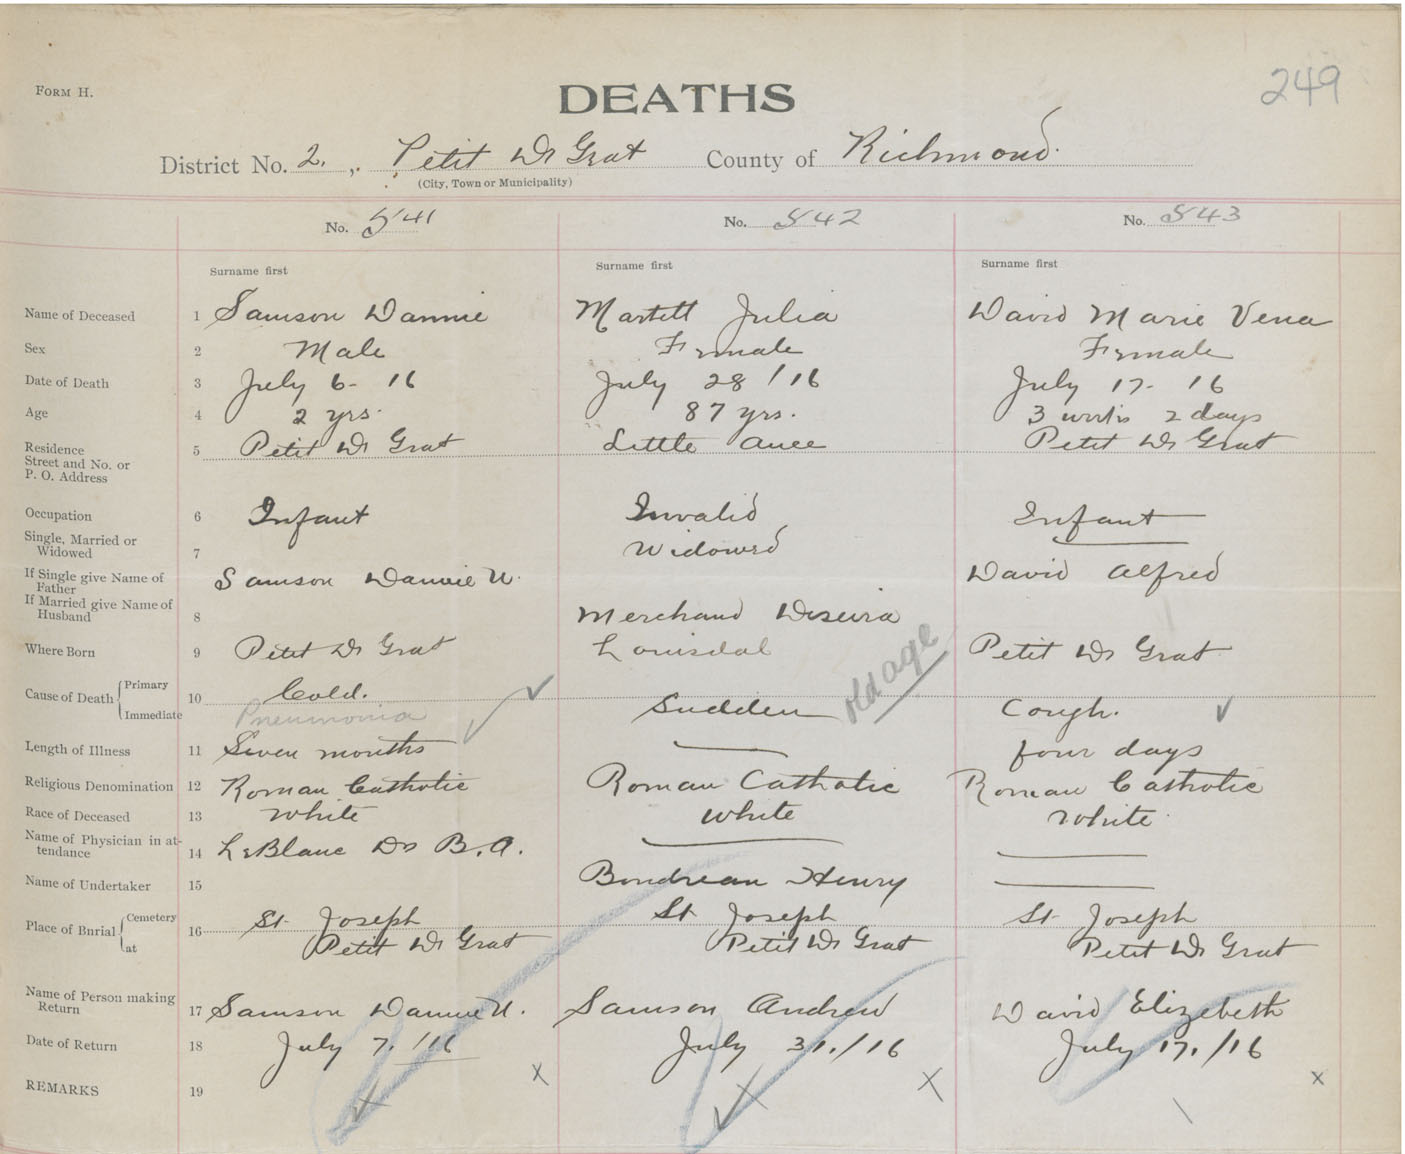 249
FORM H.
DEATHS
District No. 2. Petit De Grat County of Richmond.
(City, Town or Municipality)
No. 541 No. 542 No. 543
Surname first Surname first Surname first
Name of Deceased 1 Samson Dannie Martell Julia David Marie Vena
Sex 2 Male Female Female
Date of Death 3 July 6- 16 July 28 /16 July 17- 16
Age 4 2 yrs. 87 yrs. 3 weeks 2 days
Residence
Street and No. or
P. O. Address 5 Petit De Grat Little Ance Petit De Grat
Occupation 6 Infant Invalid Infant
Single, Married or
Widowed 7 Widowed
If Single give Name of
Father Samson Dannie W. David Alfred
If Married give Name of
Husband 8 Merchand
Where Born 9 Petit De Grat Louisdal Petit De Grat
Cause of Death Primary 10 Cold. old age
Immediate Pneumonia Sudden Cough.
Length of Illness 11 Seven months four days
Religious Denomination 12 Roman Catholic Roman Catholic Roman Catholic
Race of Deceased 13 White White White
Name of Physician in at-
tendance 14 LeBlanc Dr B. A.
Name of Undertaker 15 Boudreau Henry
Place of Burial Cemetery 16 St. Joseph St Joseph St. Joseph
at Petit De Grat Petit De Grat Petit De Grat
Name of Person making
Return 17 Samson Dannie W. Samson Andrew David Elizebeth
Date of Return 18 July 7. /16 July 31./16 July 17./16
REMARKS 19